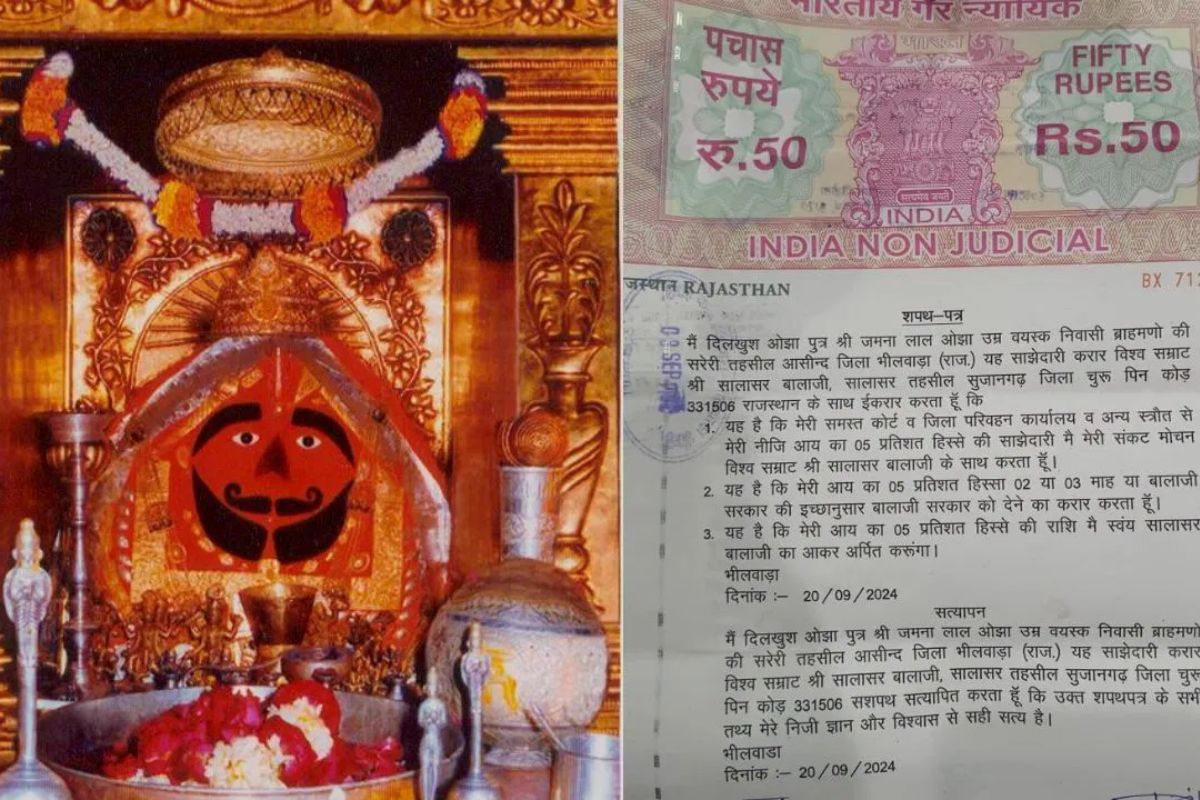 भारतीय गैर न्यायिक
पचास
रुपये
रु.50
भारत
FIFTY
RUPEES
Rs.50
सत्यमेव जयते
INDIA
INDIA NON JUDICIAL
RAJASTHAN
BX 71
शपथ–पत्र
मैं दिलखुश ओझा पुत्र श्री जमना लाल ओझा उम्र वयस्क निवासी ब्राहमणो की
सरेरी तहसील आसीन्द जिला भीलवाड़ा (राज.) यह साझेदारी करार विश्व सम्राट
श्री सालासर बालाजी, सालासर तहसील सुजानगढ़ जिला चुरू पिन कोड़
331506 राजस्थान के साथ ईकरार करता हूँ कि
1. यह है कि मेरी समस्त कोर्ट व जिला परिवहन कार्यालय व अन्य स्त्रौत से
मेरी नीजि आय का 05 प्रतिशत हिस्से की साझेदारी मै मेरी संकट मोचन
विश्व सम्राट श्री सालासर बालाजी के साथ करता हूँ।
2. यह है कि मेरी आय का 05 प्रतिशत हिस्सा 02 या 03 माह या बालाजी
सरकार की इच्छानुसार बालाजी सरकार को देने का करार करता हूँ।
3. यह है कि मेरी आय का 05 प्रतिशत हिस्से की राशि मै स्वंय सालासर
बालाजी का आकर अर्पित करूंगा।
भीलवाड़ा
दिनांक :– 20/09/2024
सत्यापन
मैं दिलखुश ओझा पुत्र श्री जमना लाल ओझा उम्र वयस्क निवासी ब्राहमणो
की सरेरी तहसील आसीन्द जिला भीलवाड़ा (राज.) यह साझेदारी करार
विश्व सम्राट श्री सालासर बालाजी, सालासर तहसील सुजानगढ़ जिला चुरू
पिन कोड़ 331506 सशपथ सत्यापित करता हूँ कि उक्त शपथपत्र के सभी
तथ्य मेरे निजी ज्ञान और विश्वास से सही सत्य है।
भीलवाडा
दिनांक :– 20/09/2024